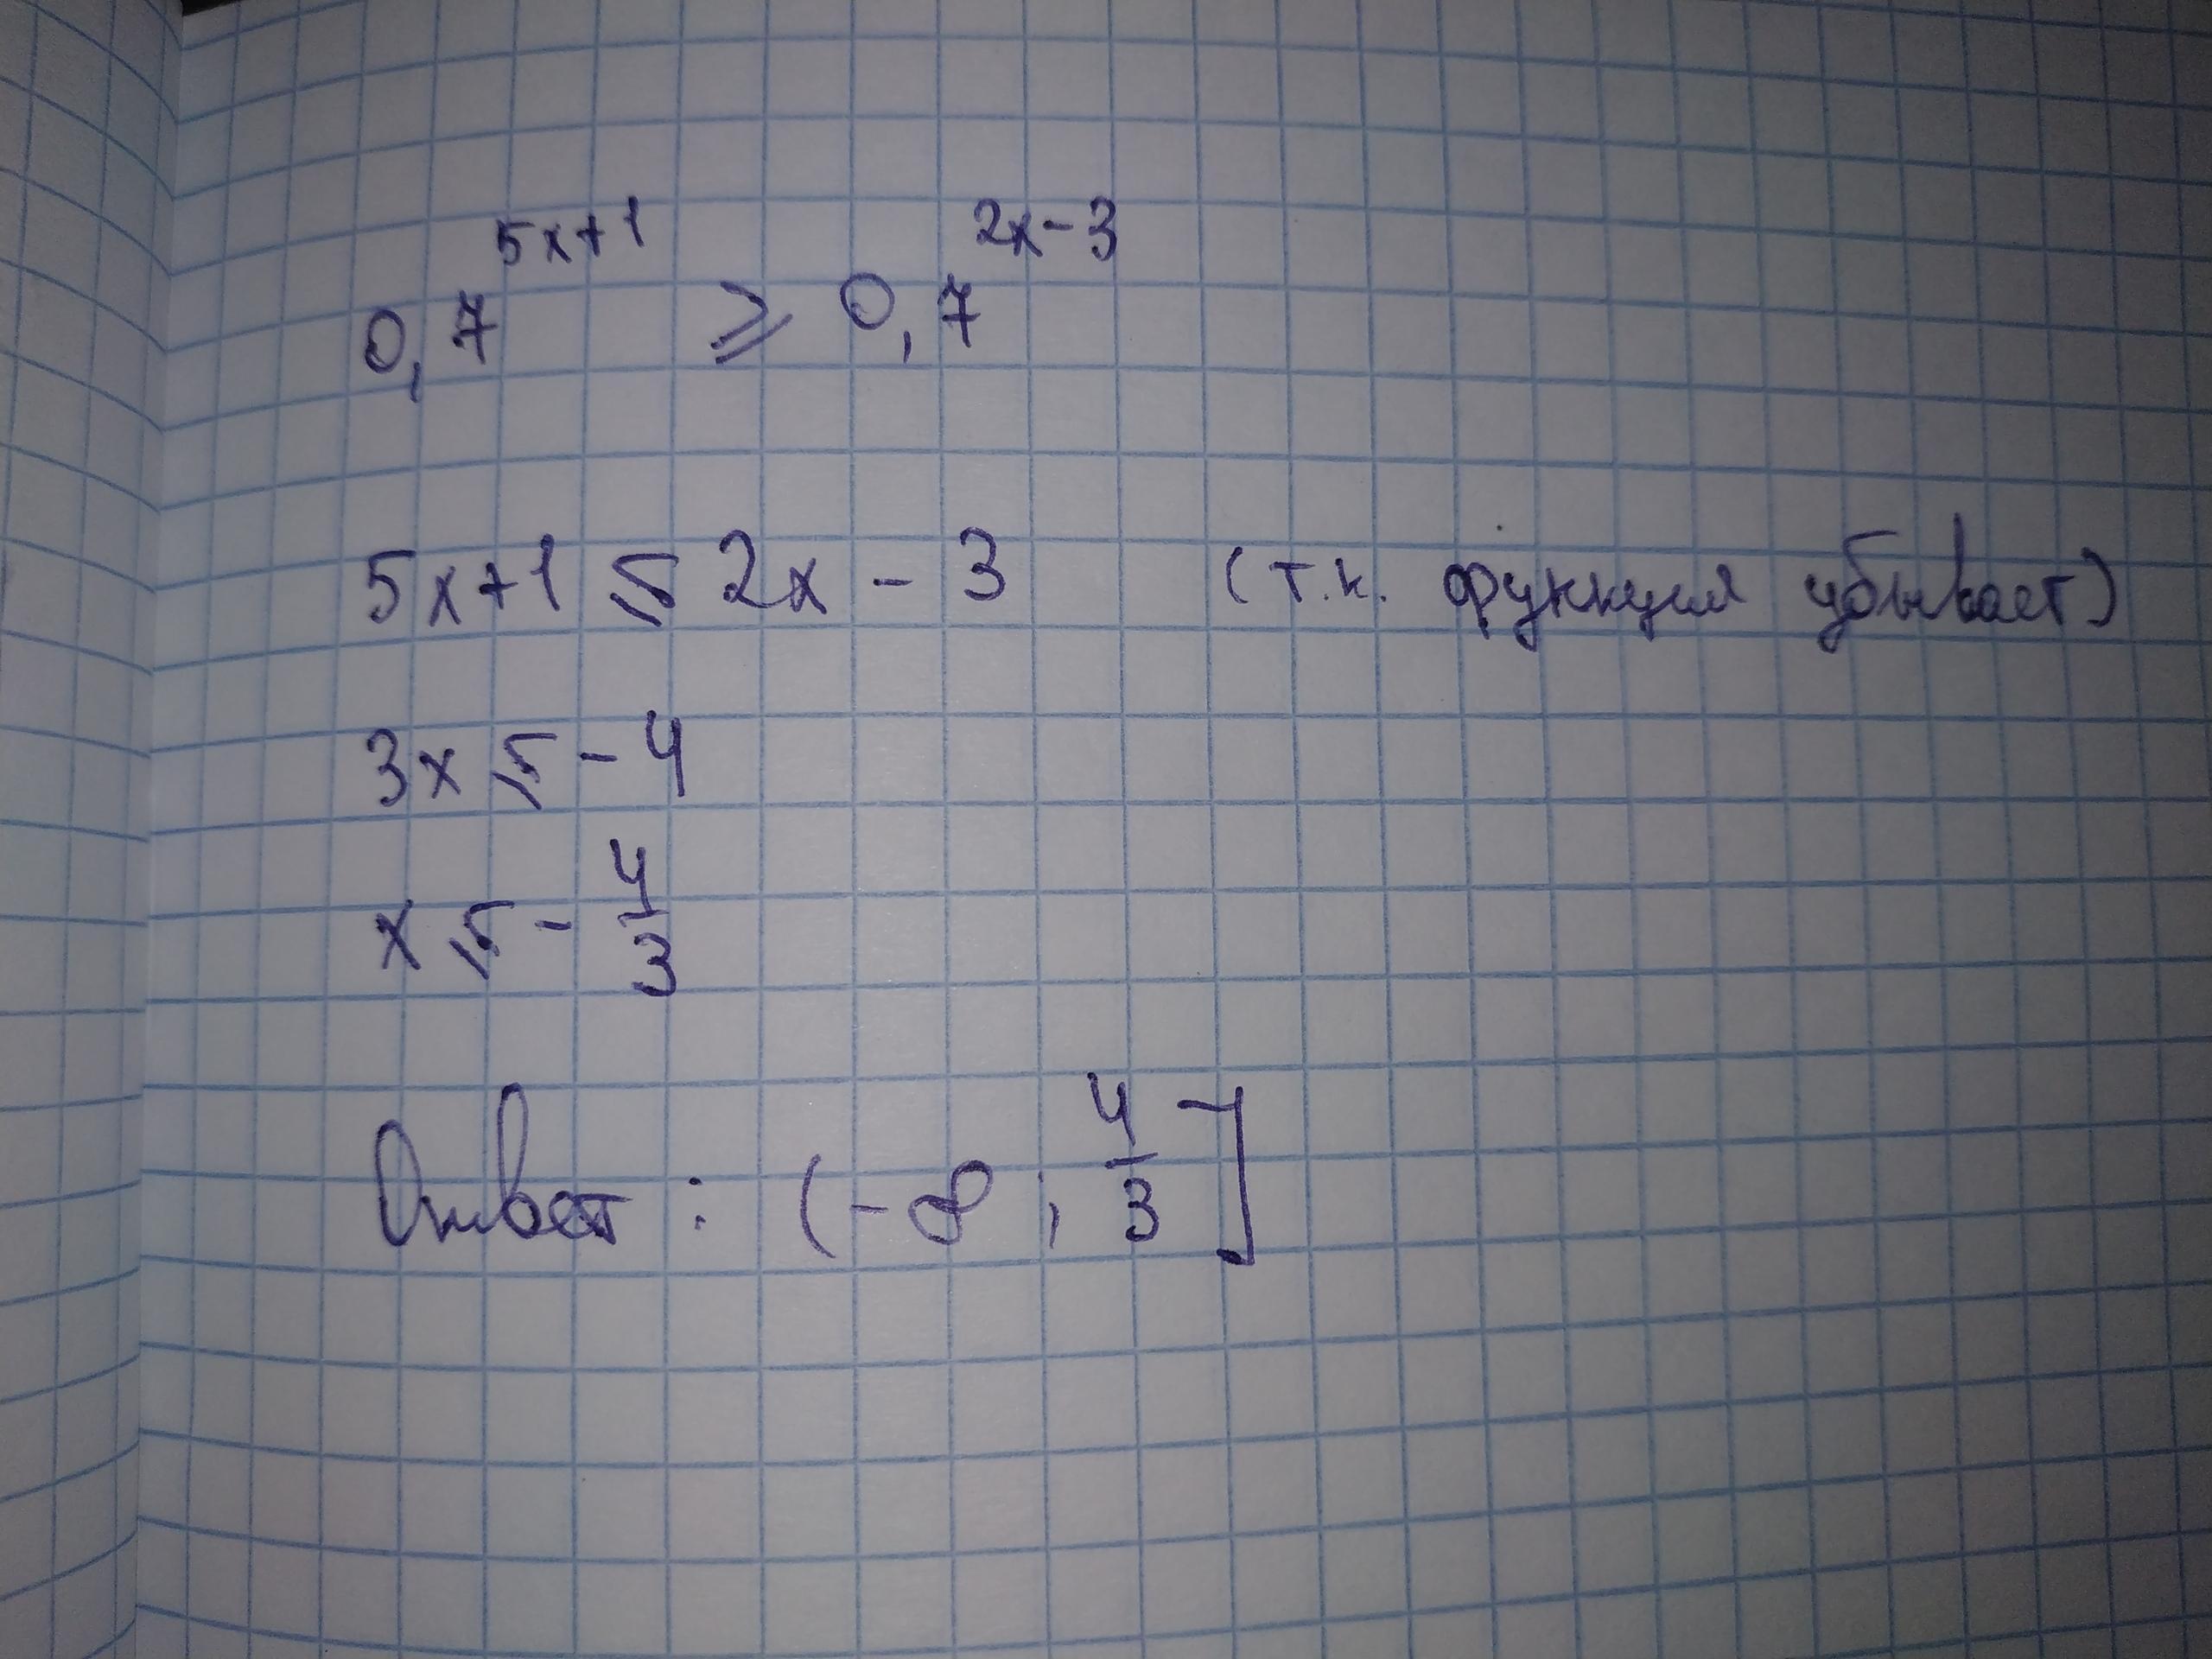 0,7^{5x+1} ⩾ 0,7^{2x-3}
5x+1 ⩽ 2x - 3 (т.к. функция убывает)
3x ⩽ -4
x ⩽ - 4/3
Ответ: (-∞; 4/3]